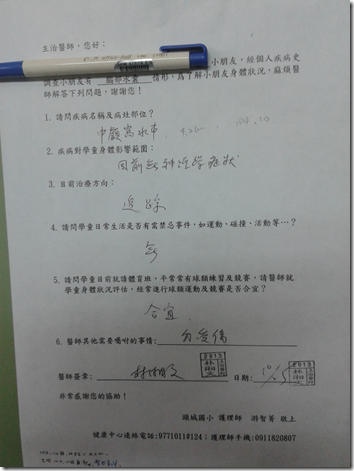 主治醫師，您好：
小朋友，經個人疾病史
調查小朋友有 腦部水囊 情形，為了解小朋友身體狀況，麻煩醫
師解答下列問題，謝謝您！
1. 請問疾病名稱及病灶部位？
中顱窩水囊
2. 疾病對學童身體影響範圍：
目前無神經學症狀
3. 目前治療方向：
追蹤
4. 請問學童日常生活是否有需禁忌事件，如運動、碰撞、活動等…？
無
5. 請問學童目前就讀體育班，平常常有球類練習及競賽，請醫師就
學童身體狀況評估，經常進行球類運動及競賽是否合宜？
合宜
6. 醫師其他需要囑咐的事情：勿受傷
醫師簽章： 日期：
非常感謝您的協助！
頭城國小 護理師 游智菁 敬上
健康中心連絡電話:9771011#124；護理師手機:0911820807